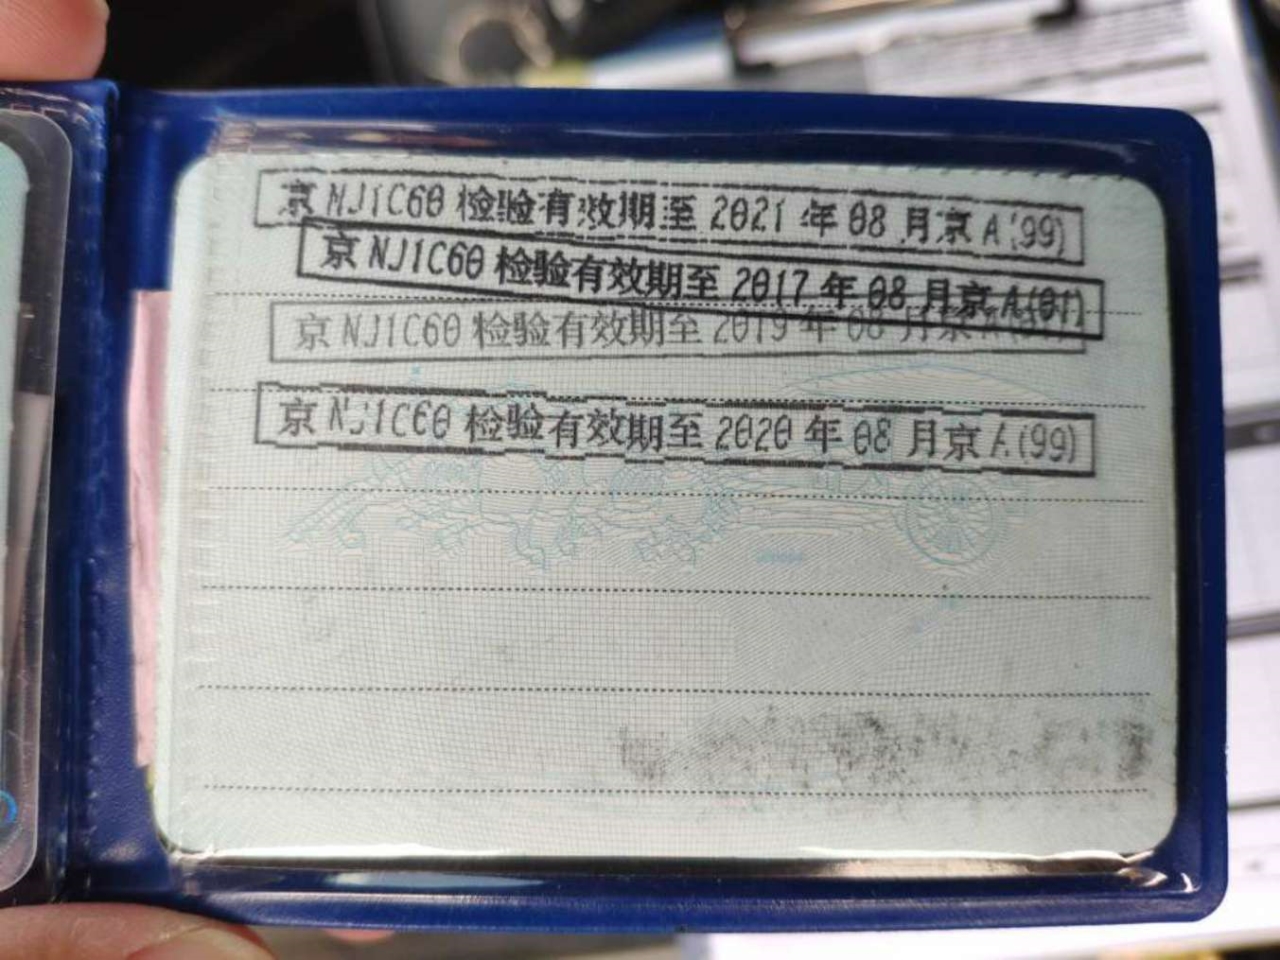 京NJ1C60检验有效期至2021年08月京A(99)
京NJ1C60检验有效期至2017年08月京A(01)
京NJ1C60检验有效期至2019年08月京
京NJ1C60检验有效期至2020年08月京A(99)